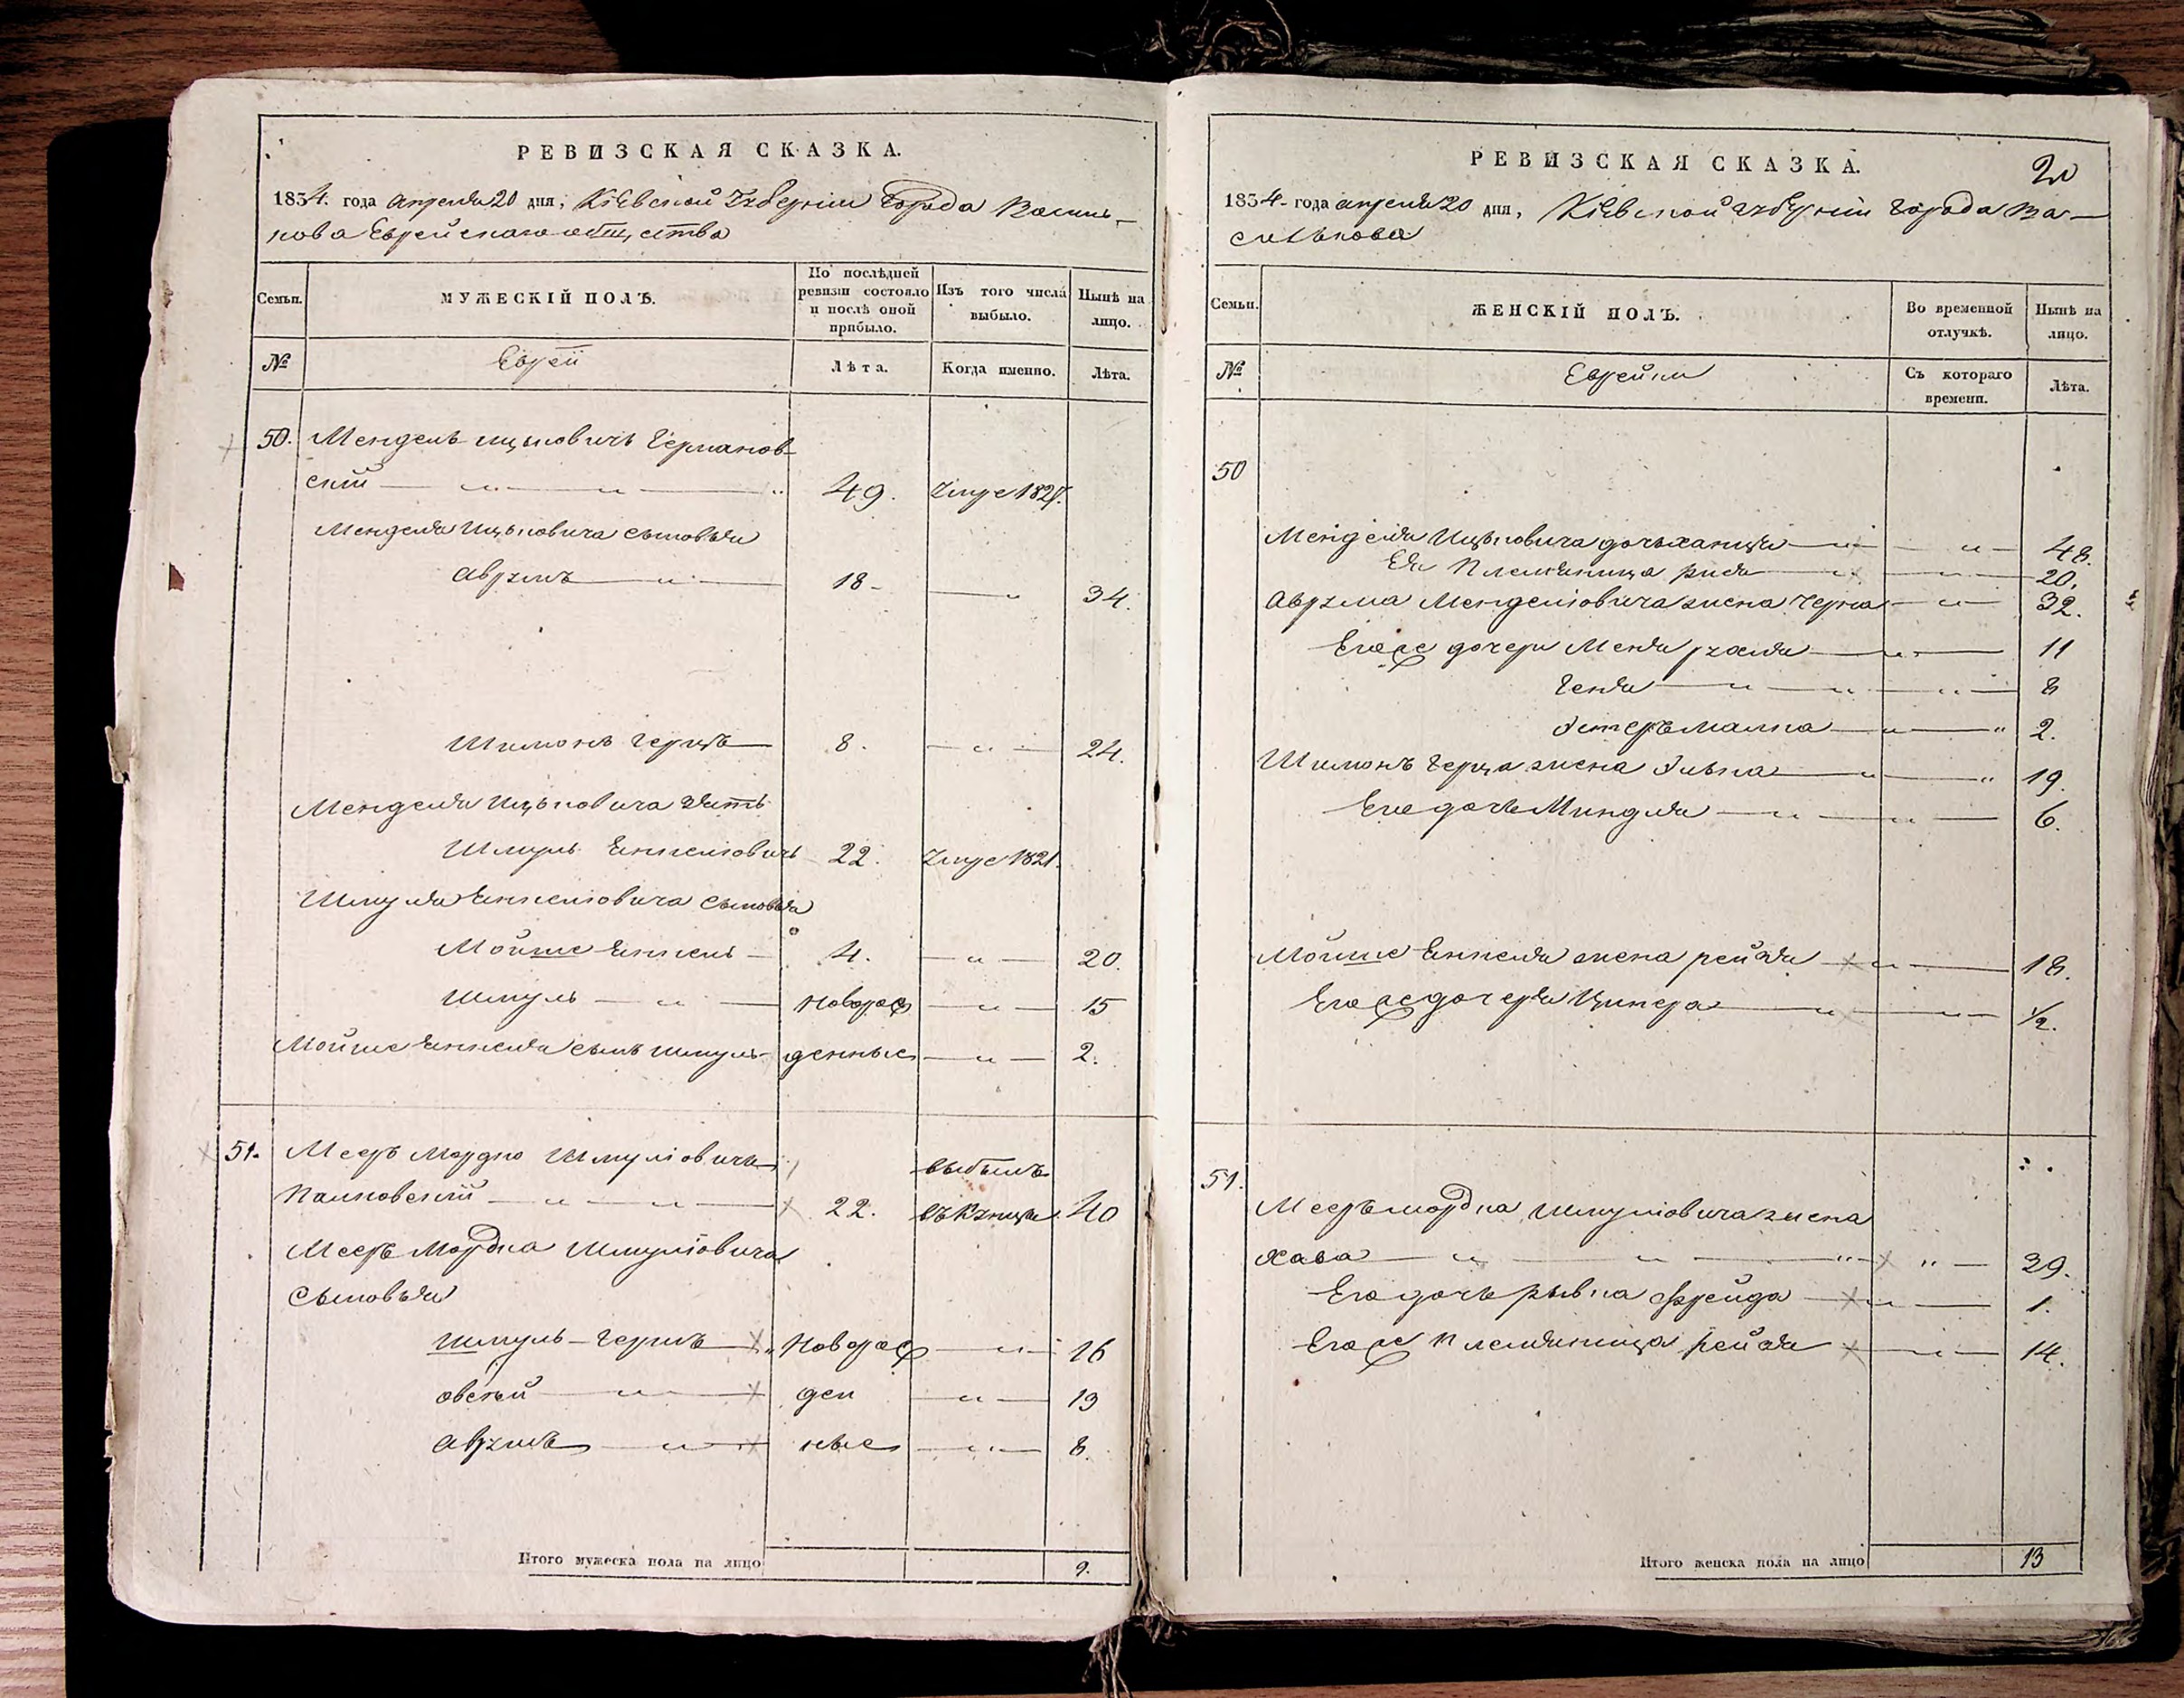 РЕВИЗСКАЯ СКАЗКА.
1834. года апреля 20 дня, Кіевской Губерніи Города Василь-
кова Еврейскаго общества
Семьи.
МУЖЕСКІЙ ПОЛЪ.
По послѣдней ревизіи состояло и послѣ оной прибыло.
Изъ того числа выбыло.
Нынѣ на лицо.
№
Евреи
Лѣта.
Когда именно.
Лѣта.
50. Мендель Ицьковичъ Германов-
ский 49. Умре 1827.
Менделя Ицьковича сыновья
Аврумъ 18 34.
Шимонъ Герцъ 8. 24.
Менделя Ицьковича зять
Шмуль Еннелювичъ 22. Умре 1821.
Шмуля Еннелювича сыновья
Мойше Еннель 4. 20.
Шмуль новорож 15
Мойше Еннеля сынъ Шмуль денные 2.
51. Мееръ Мордко Шмулювичъ выбылъ
Палковский 22. въ Купцы 40
Мееръ Мордка Шмулювича
Сыновья
Шмуль-Гершъ новорож 16
Овсей ден 13
Аврумъ ные 8.
Итого мужеска пола на лицо 9.
РЕВИЗСКАЯ СКАЗКА.
20
1834 года апреля 20 дня, Кіевской губерніи города Ва-
силькова
Семьи.
ЖЕНСКІЙ ПОЛЪ.
Во временной отлучкѣ.
Нынѣ на лицо.
№
Еврейки
Съ котораго времени.
Лѣта.
50
Менделя Ицьковича дочь Ханця 48.
Ея Племяница Рися 20.
Аврума Менделювича жена Черна 32.
Егоже дочери Меня Рухля 11
Геня 8
Эстеръ Малка 2.
Шимонъ Герца жена Элька 19.
Его дочь Миндля 6.
Мойше Еннеля жена Рейзя 18.
Егоже дочеря Ципера 1/2.
51.
Мееръ Мордка Шмулювича жена
Хава 29.
Его дочь Рывка Фрейда 1.
Егоже Племяница Рейзя 14.
Итого женска пола на лицо 13